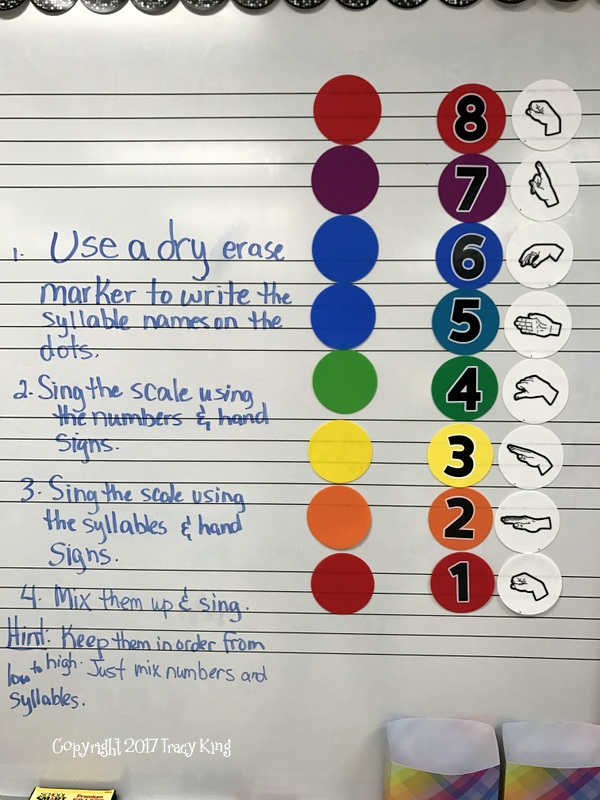 1. Use a dry erase
marker to write the
syllable names on the
dots.
2. Sing the scale using
the numbers & hand
signs.
3. Sing the scale using
the syllables & hand
Signs.
4. Mix them up & sing.
Hint: Keep them in order from
low to high. Just mix numbers and
syllables.
8
7
6
5
4
3
2
1
Copyright 2017 Tracy King
SCHOOL
SMART
Premium